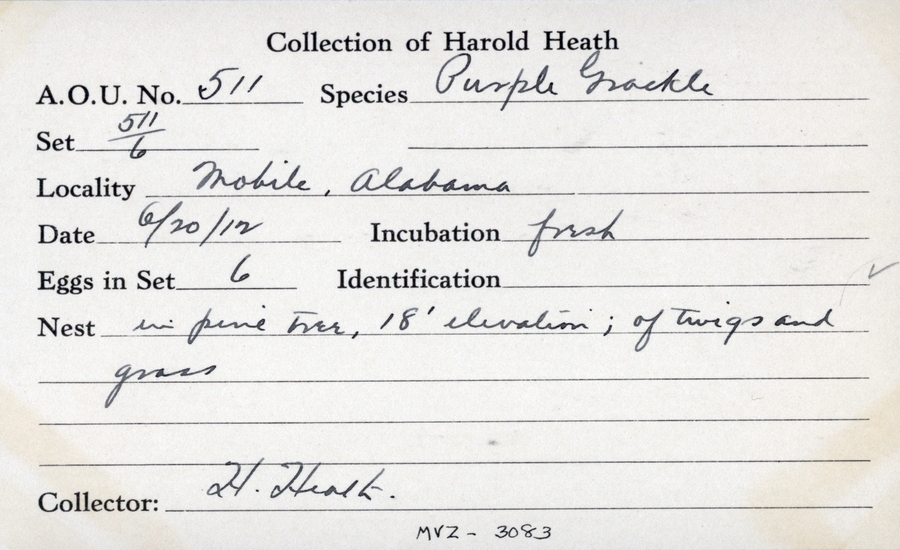 Collection of Harold Heath
A.O.U. No. 511 Species Purple Grackle
Set 511/6
Locality Mobile, Alabama
Date 6/20/12 Incubation fresh
Eggs in Set 6 Identification ✓
Nest in pine tree, 18' elevation; of twigs and
grass
Collector: H. Heath.
MVZ - 3083